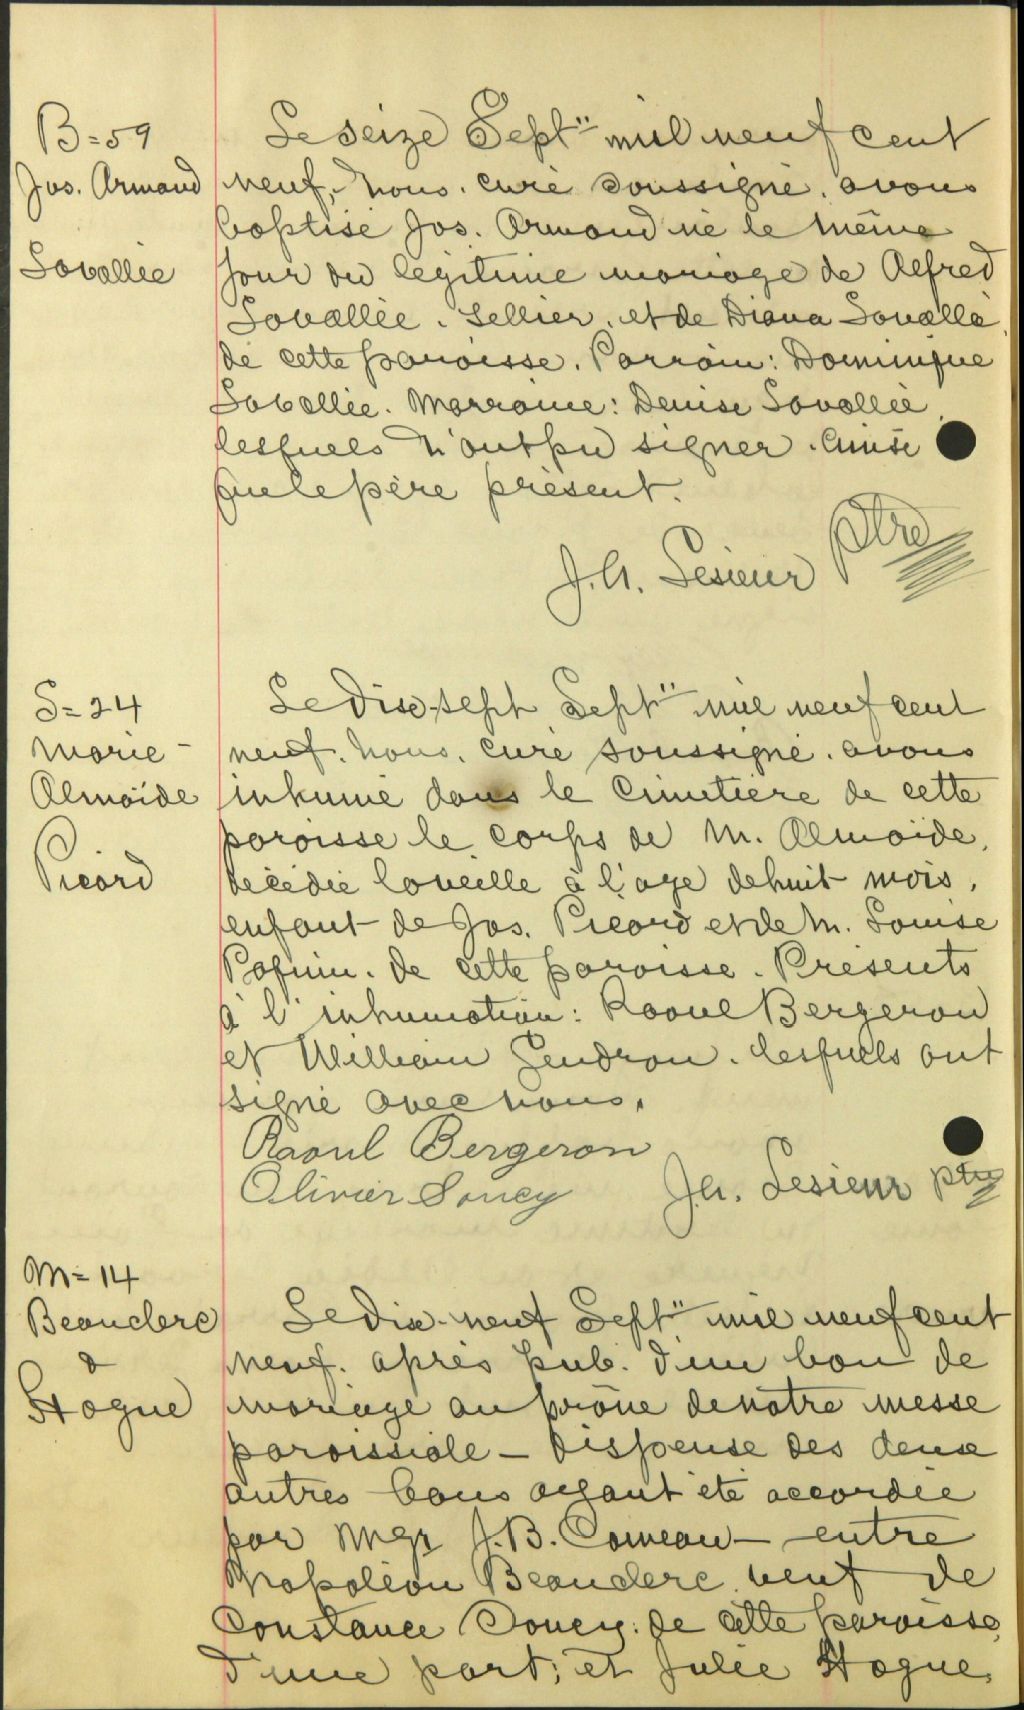 B=59
Jos. Armand
Lavallée
Le seize Sept" mil neuf cent
neuf, nous, curé soussigné, avons
baptisé Jos. Armand né le même
jour du légitime mariage de Alfred
Lavallée, sellier, et de Diana Lavallé
de cette paroisse. Parrain: Dominique
Lavallée. Marraine: Denise Lavallée,
lesquels n'ont pu signer. Ainsi
que le père présent.
J.A. Lesieur ptre
S=24
Marie-
Almaïde
Picard
Le dix-sept Sept" mil neuf cent
neuf. nous, curé soussigné, avons
inhumé dans le cimetière de cette
paroisse le corps de M. Almaïde,
décédée la veille à l'age de huit mois,
enfant de Jos. Picard et de M. Louise
Paquin. de cette paroisse. Présents
à l'inhumation: Raoul Bergeron
et William Gendron. lesquels ont
signé avec nous.
Raoul Bergeron
Olivier Soucy
J.A. Lesieur ptre
M=14
Beauclerc
&
Hogue
Le dix-neuf Sept" mil neuf cent
neuf. après pub. d'un ban de
mariage au prône de notre messe
paroissiale - dispense des deux
autres bans ayant été accordée
par Mgr J.B. Comeau - entre
Napoléon Beauclerc, veuf de
Constance Doucy: de cette paroisse,
d'une part; et Julie Hogue,